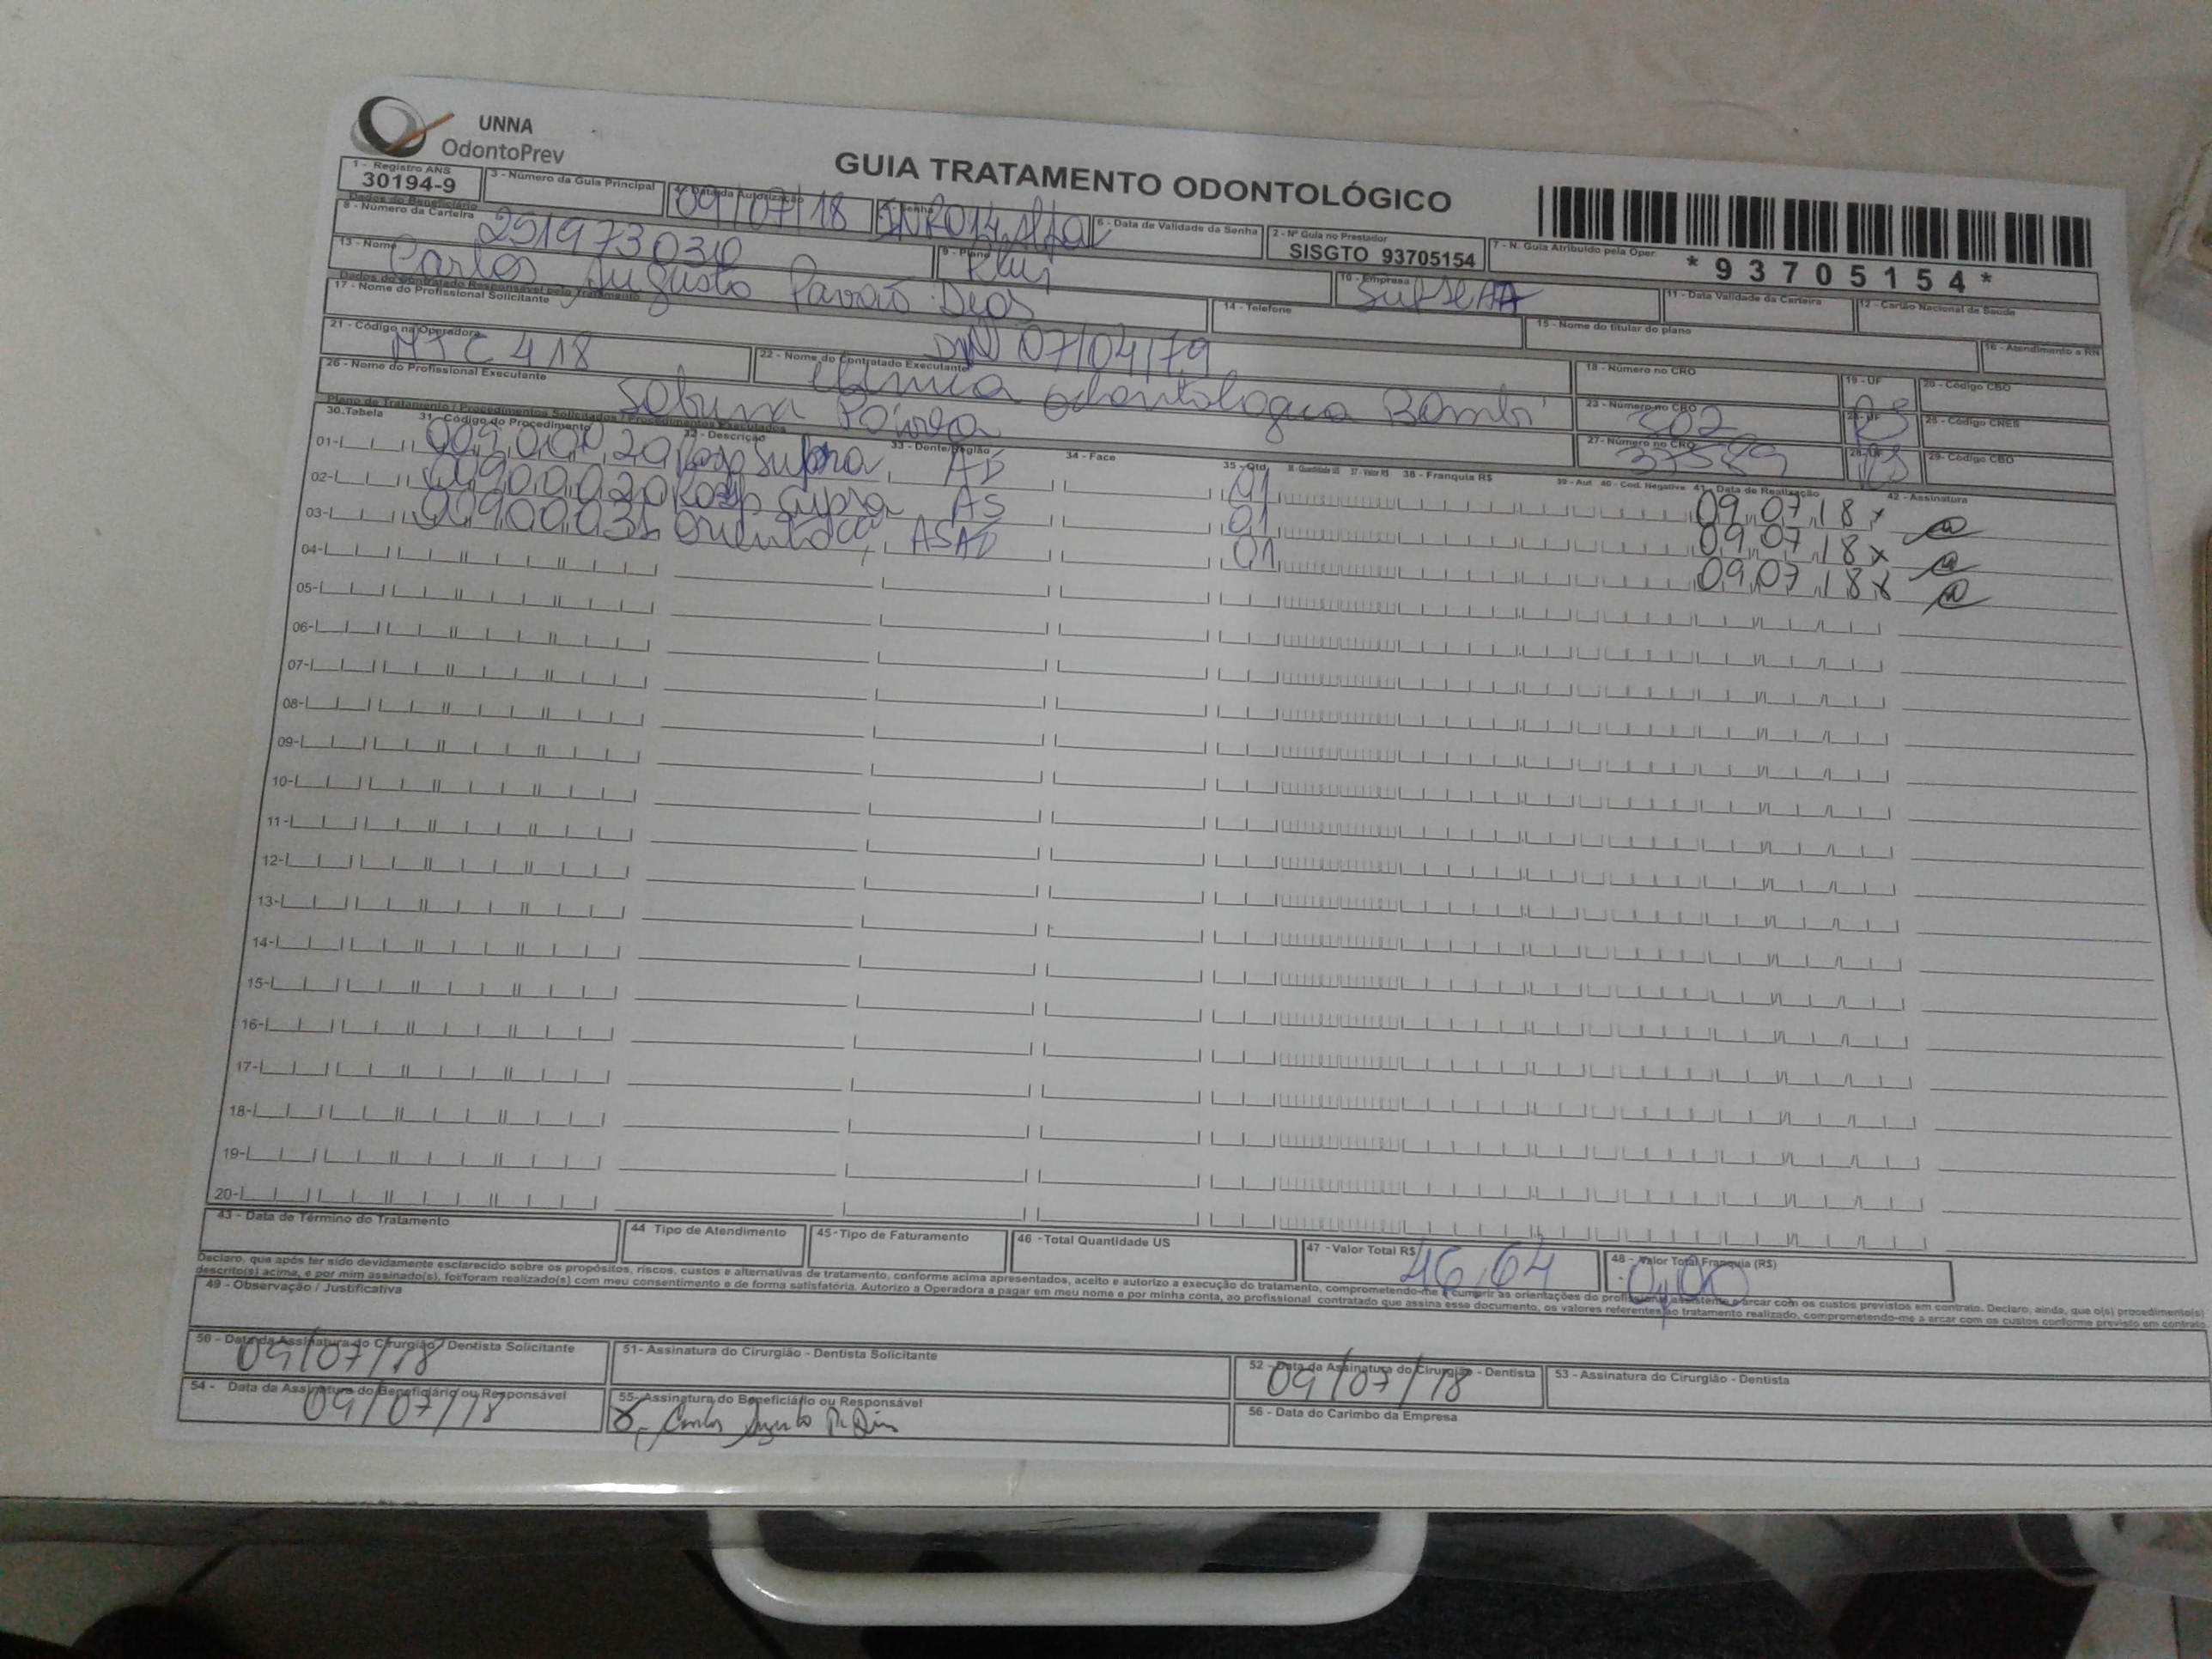 UNNA
OdontoPrev
GUIA TRATAMENTO ODONTOLÓGICO
1 - Registro ANS
30194-9
3 - Número da Guia Principal
4 - Data da Autorização
09/07/18
5 - Senha
6 - Data de Validade da Senha
2 - Nº Guia no Prestador
SISGTO 93705154
7 - N. Guia Atribuído pela Oper.
*93705154*
Dados do Beneficiário
8 - Número da Carteira
251973030
9 - Plano
10 - Empresa
11 - Data Validade da Carteira
12 - Cartão Nacional de Saúde
13 - Nome
Carlos Augusto
14 - Telefone
15 - Nome do titular do plano
16 - Atendimento a RN
Dados do Contratado Responsável pelo Tratamento
17 - Nome do Profissional Solicitante
DN 07/04/79
18 - Número no CRO
19 - UF
20 - Código CBO
21 - Código na Operadora
418
22 - Nome do Contratado Executante
Clínica Odontológica
23 - Número no CRO
502
24 - UF
RS
25 - Código CNES
26 - Nome do Profissional Executante
27 - Número no CRO
28 - UF
RS
29 - Código CBO
Plano de Tratamento / Procedimentos Solicitados / Procedimentos Executados
30.Tabela 31 - Código do Procedimento 32 - Descrição 33 - Dente/Região 34 - Face 35 - Qtd 36 - Quantidade US 37 - Valor R$ 38 - Franquia R$ 39 - Aut 40 - Cod. Negativa 41 - Data de Realização 42 - Assinatura
01- Supra AD 01 09 07 18 x
02- Supra AS 01 09 07 18 x
03- ASAD 01 09 07 18 x
04-
05-
06-
07-
08-
09-
10-
11-
12-
13-
14-
15-
16-
17-
18-
19-
20-
43 - Data de Término do Tratamento
44 Tipo de Atendimento
45 - Tipo de Faturamento
46 - Total Quantidade US
47 - Valor Total R$
46,64
48 - Valor Total Franquia (R$)
0,00
Declaro, que após ter sido devidamente esclarecido sobre os propósitos, riscos, custos e alternativas de tratamento, conforme acima apresentados, aceito e autorizo a execução do tratamento, comprometendo-me a cumprir as orientações do profissional assistente e arcar com os custos previstos em contrato. Declaro, ainda, que o(s) procedimento(s)
descrito(s) acima, e por mim assinado(s), foi/foram realizado(s) com meu consentimento e de forma satisfatória. Autorizo a Operadora a pagar em meu nome e por minha conta, ao profissional contratado que assina esse documento, os valores referentes ao tratamento realizado, comprometendo-me a arcar com os custos conforme previsto em contrato.
49 - Observação / Justificativa
50 - Data da Assinatura do Cirurgião / Dentista Solicitante
09/07/18
51- Assinatura do Cirurgião - Dentista Solicitante
52 - Data da Assinatura do Cirurgião - Dentista
09/07/18
53 - Assinatura do Cirurgião - Dentista
54 - Data da Assinatura do Beneficiário ou Responsável
09/07/18
55- Assinatura do Beneficiário ou Responsável
56 - Data do Carimbo da Empresa